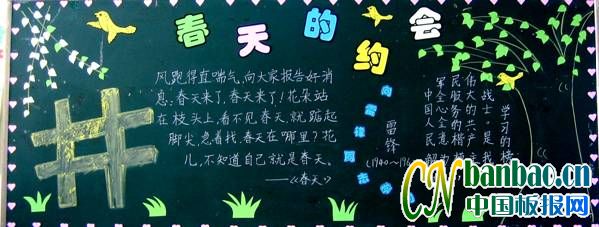 春天的约会
风跑得直喘气,向大家报告好消
息:春天来了,春天来了!花朵站
在枝头上,看不见春天就踮起
脚尖,急着找.春天在哪里?花
儿,不知道自己就是春天。
——《春天》
向雷锋同志学
雷锋
(1940~19
学习的榜
战士,是我
伟大的共产
民服务的楷
军全心全意
中国人民解
CN banbao.cn
中国板报网